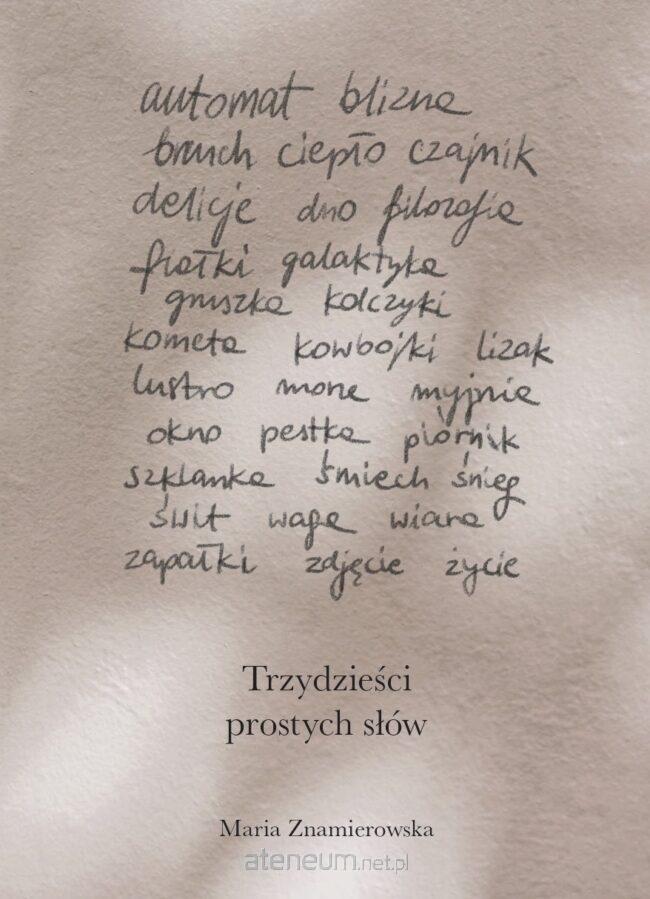 automat blizna
brzuch ciepło czajnik
delicje dno filozofia
fiołki galaktyka
gruszka kolczyki
kometa kowbojki lizak
lustro morze myjnia
okno pestka piórnik
szklanka śmiech śnieg
świt waga wiara
zapałki zdjęcie życie
Trzydzieści
prostych słów
Maria Znamierowska
ateneum.net.pl